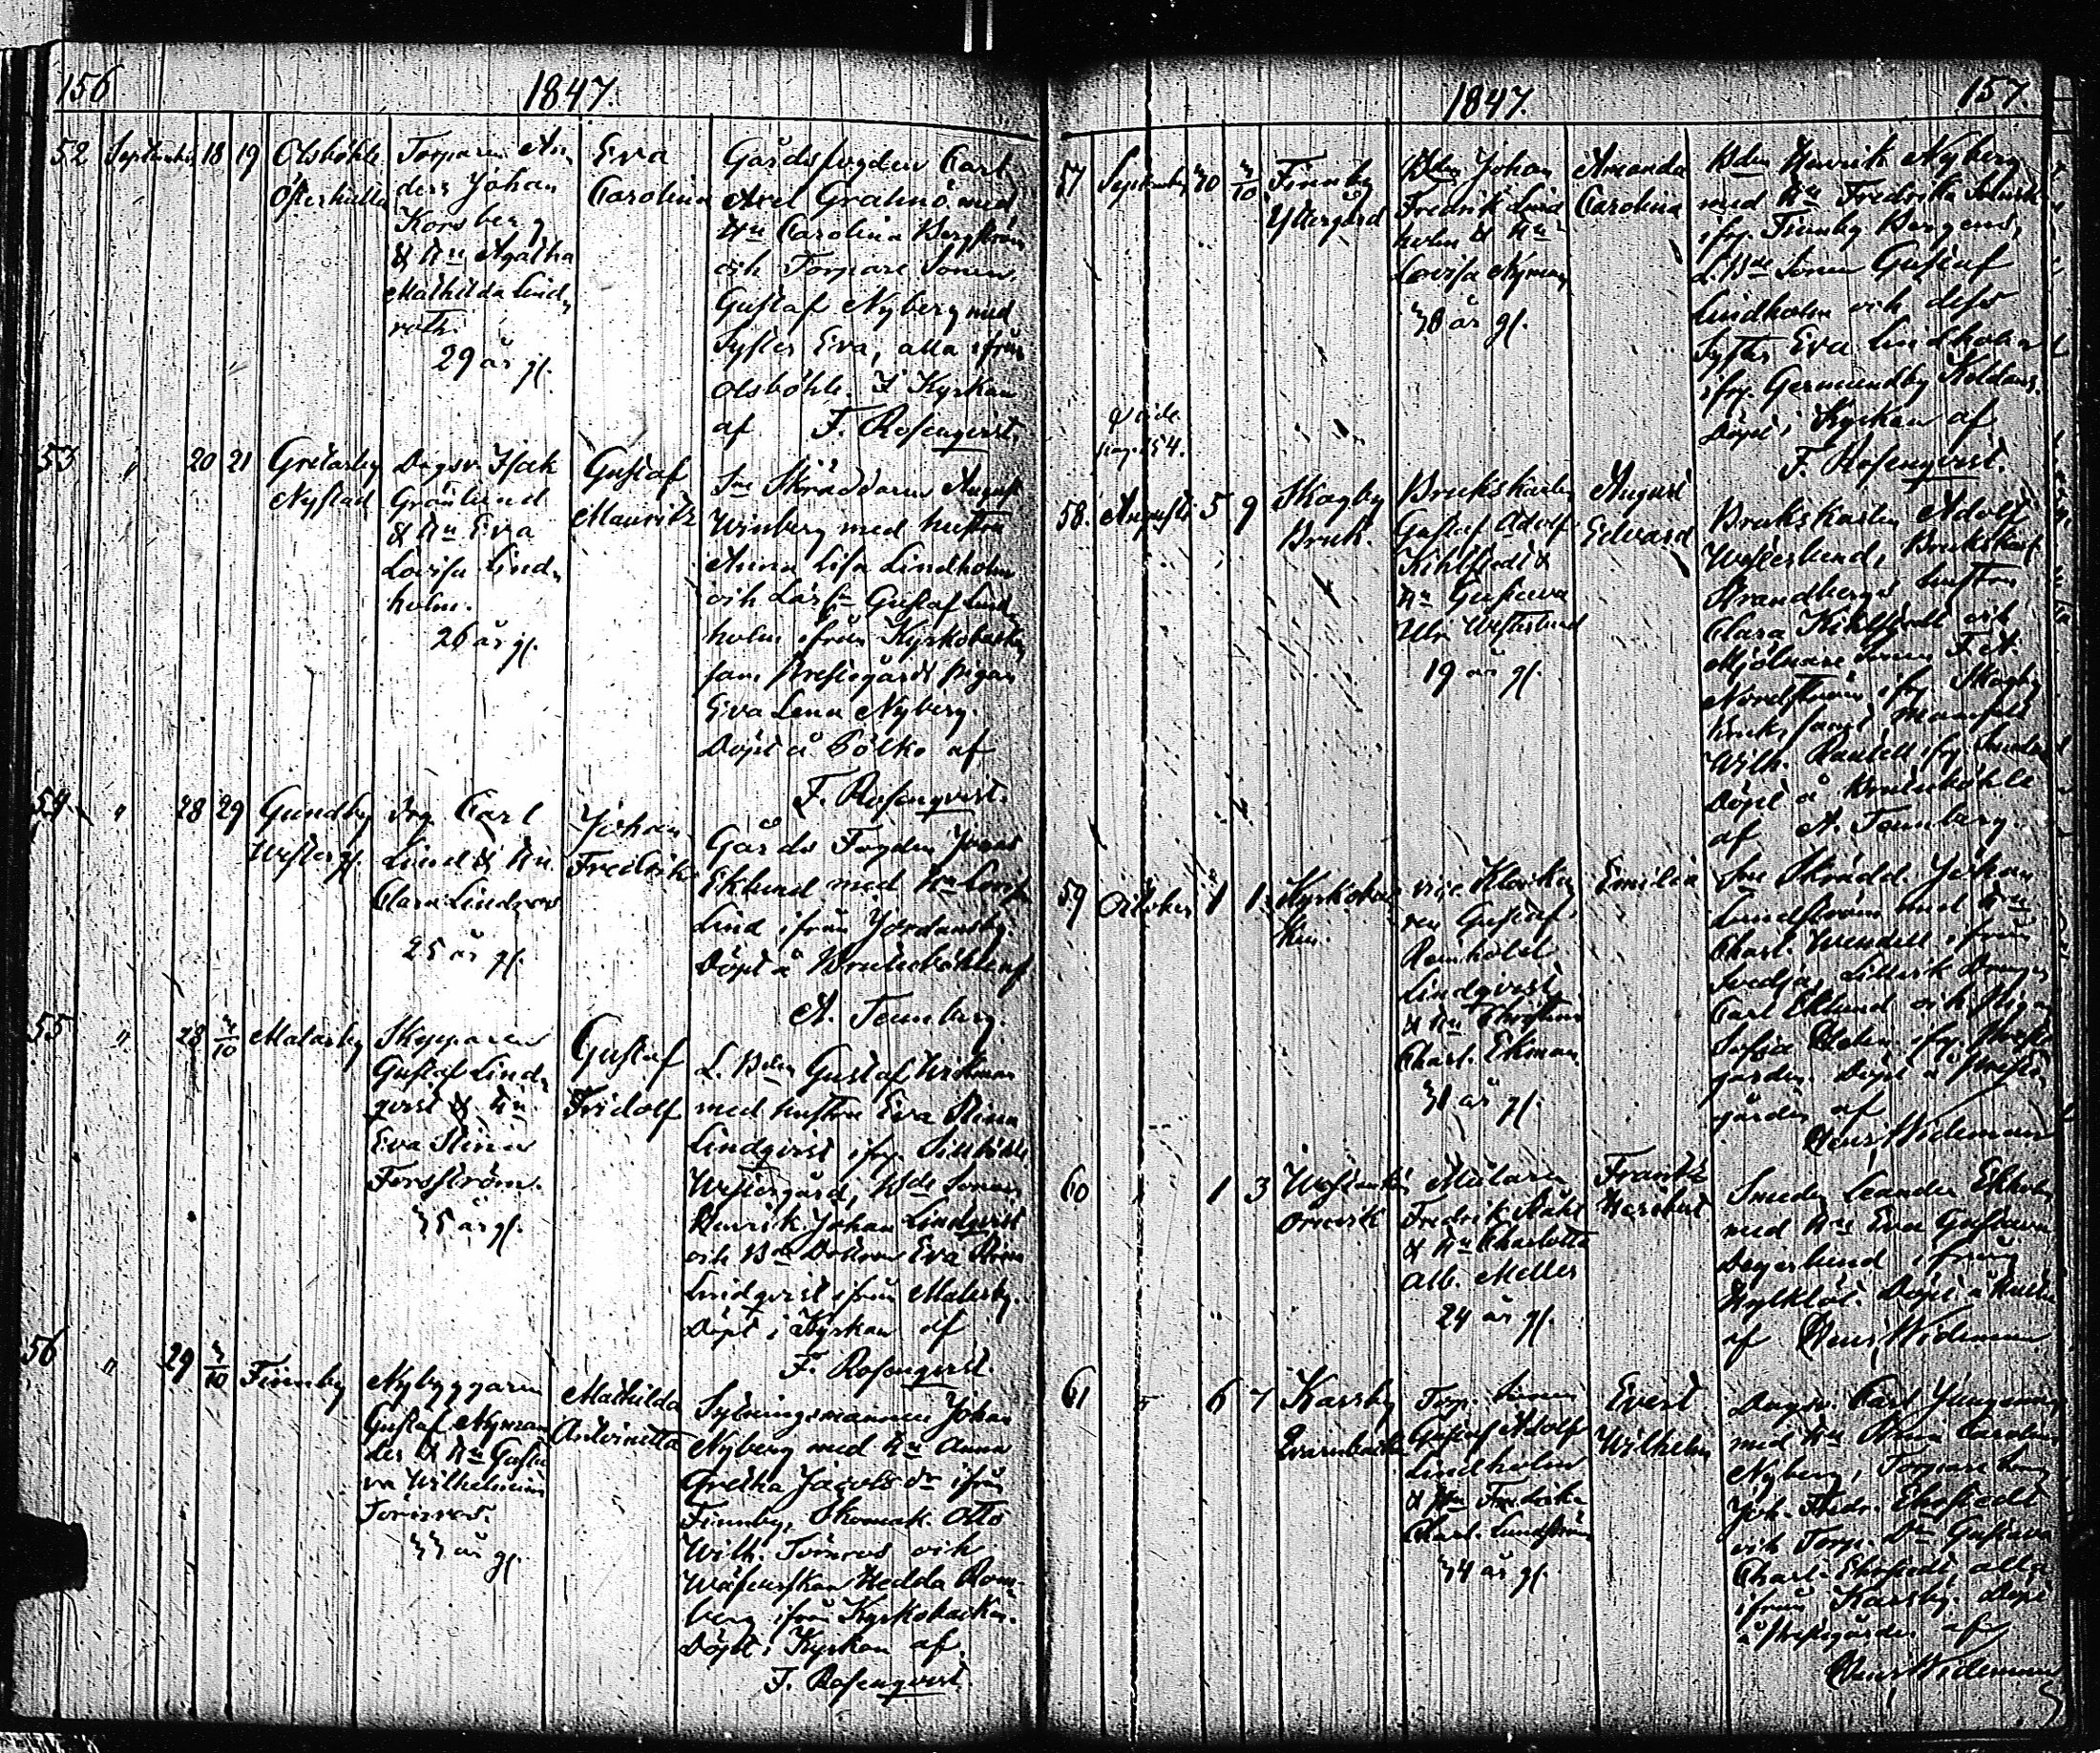 156
1847.
52 September 18 19
Olsböhle
Österhulta
Torparen An
ders Johan
Korsberg
& Hu Agatha
Mathilda Lind
roth.
29 år gl.
Eva
Carolina
Gårdsfogden Carl
Axel Grahnö med
Hu Carolina Bergström
och Torpare Sonen
Gustaf Nyberg med
Syster Eva, alla ifrån
Olsböhle. I Kyrkan
af F. Rosenqvist.
53 " 20 21
Gretarby
Nystad
Dagsv. Isak
Grönlund
& Hu Eva
Lovisa Lind
holm.
26 år gl.
Gustaf
Mauritz
Sne Skräddaren August
Winberg med hustru
Anna Lisa Lindholm
och Gustaf Lind
holm ifrån Kyrkobacken
samt Prestgårds pigan
Eva Lena Nyberg.
Döpt å Bölko af
F. Rosenqvist.
54 " 28 29
Gundby
Westergl.
Drg. Carl
Lind & Hu
Clara Lindroos
25 år gl.
Johan
Fredrik
Gårds Fogden Jonas
Eklund med Hu Lovisa
Lind ifrån Jordansby.
Döpt å Brutuböhle af
A. Tennberg.
55 " 28 3/10
Malarby
Skepparen
Gustaf Lind
qvist & Hu
Eva Stina
Forsström.
35 år gl.
Gustaf
Fridolf
L. Bden Gustaf Wikman
med hustru Eva Stina
Lindqvist ifr.
Westergård, Bde Sonen
Henrik Johan Lindqvist
och Bde Dottren Eva Stina
Lindqvist ifrån Malarby.
Döpt i Kyrkan af
F. Rosenqvist.
56 " 29 3/10
Finnby
Nybyggaren
Gustaf Nyman
der & Hu Gusta
va Wilhelmina
Törnroos.
33 år gl.
Mathilda
Antoinetta
Sytningsmannen Johan
Nyberg med Hu Anna
Gretha Jacobs dr ifrån
Finnby, Skomak. Otto
Wilh. Törnroos och
Hedda Rom
berg ifrån Kyrkobacken.
Döpt i Kyrkan af
F. Rosenqvist.
1847.
157.
57 September 30 3/10
Finnby
Yttergård
Bden Johan
Fredrik Lind
holm & Hu
Lovisa Nyman
38 år gl.
Amanda
Carolina
Bden Henrik Nyberg
med Hu Fredrika
ifr. Finnby Bergens,
L. Bde Sonen Gustaf
Lindholm och dess
Syster Eva Lindholm
ifr. Germundby Koldans.
Döpt i Kyrkan af
F. Rosenqvist.
Vide
pag. 154.
58. Augusti 5 9
Skogby
Bruk.
Brukskarlen
Gustaf Adolf
Kihlstedt &
Hu Gustava
Ulr. Westerlund
19 år gl.
August
Edvard
Brukskarlen Adolf
Westerlund, Brukskarl
Strandbergs hustru
Clara Kihlstedt och
Mjölnare Sonen F. A.
Nordström ifr. Skogby
bruk, samt Mamsell
Wilh. ifr.
Döpt å Brutuböhle
af A. Tennberg.
59 October 1 1
Kyrkobac
ken.
vice Klocka
ren Gustaf
Reinhold
Lindqvist
& Hu Christina
Charl. Ekman.
31 år gl.
Emilia
Sne Skrädd. Johan
Lundström med Hu
Charl. Wendell ifrån
Svedja, Drengen
Carl Eklund och Pigan
Sofia ifr. Prest
gården. Döpt å Prest
gården af
Henr. Wideman
60 " 1 3
Westankärr
Målaren
Fredrik Ståhl
& Hu Charlotta
Alb. Meller
24 år gl.
Frantz
Heribert
Smeden Leander Ekholm
med Hu Eva Gustava
Degerlund ifrån
Döpt å
af Henr. Wideman.
61 " 6 7
Karsby
Qvarnbacka
Torp. Sonen
Gustaf Adolf
Lindholm
& Hu Fredrika
Charl. Lundström
34 år gl.
Evert
Wilhelm
Dagsv. Carl
med Hu Carolina
Nyberg, Torpare Son
Joh. Fredr. Ekstedt
och Torp. Dr Gustava
Charl. Ekstedt, alla
ifrån Karsby. Döpt
å Prestgården af
Henr. Wideman